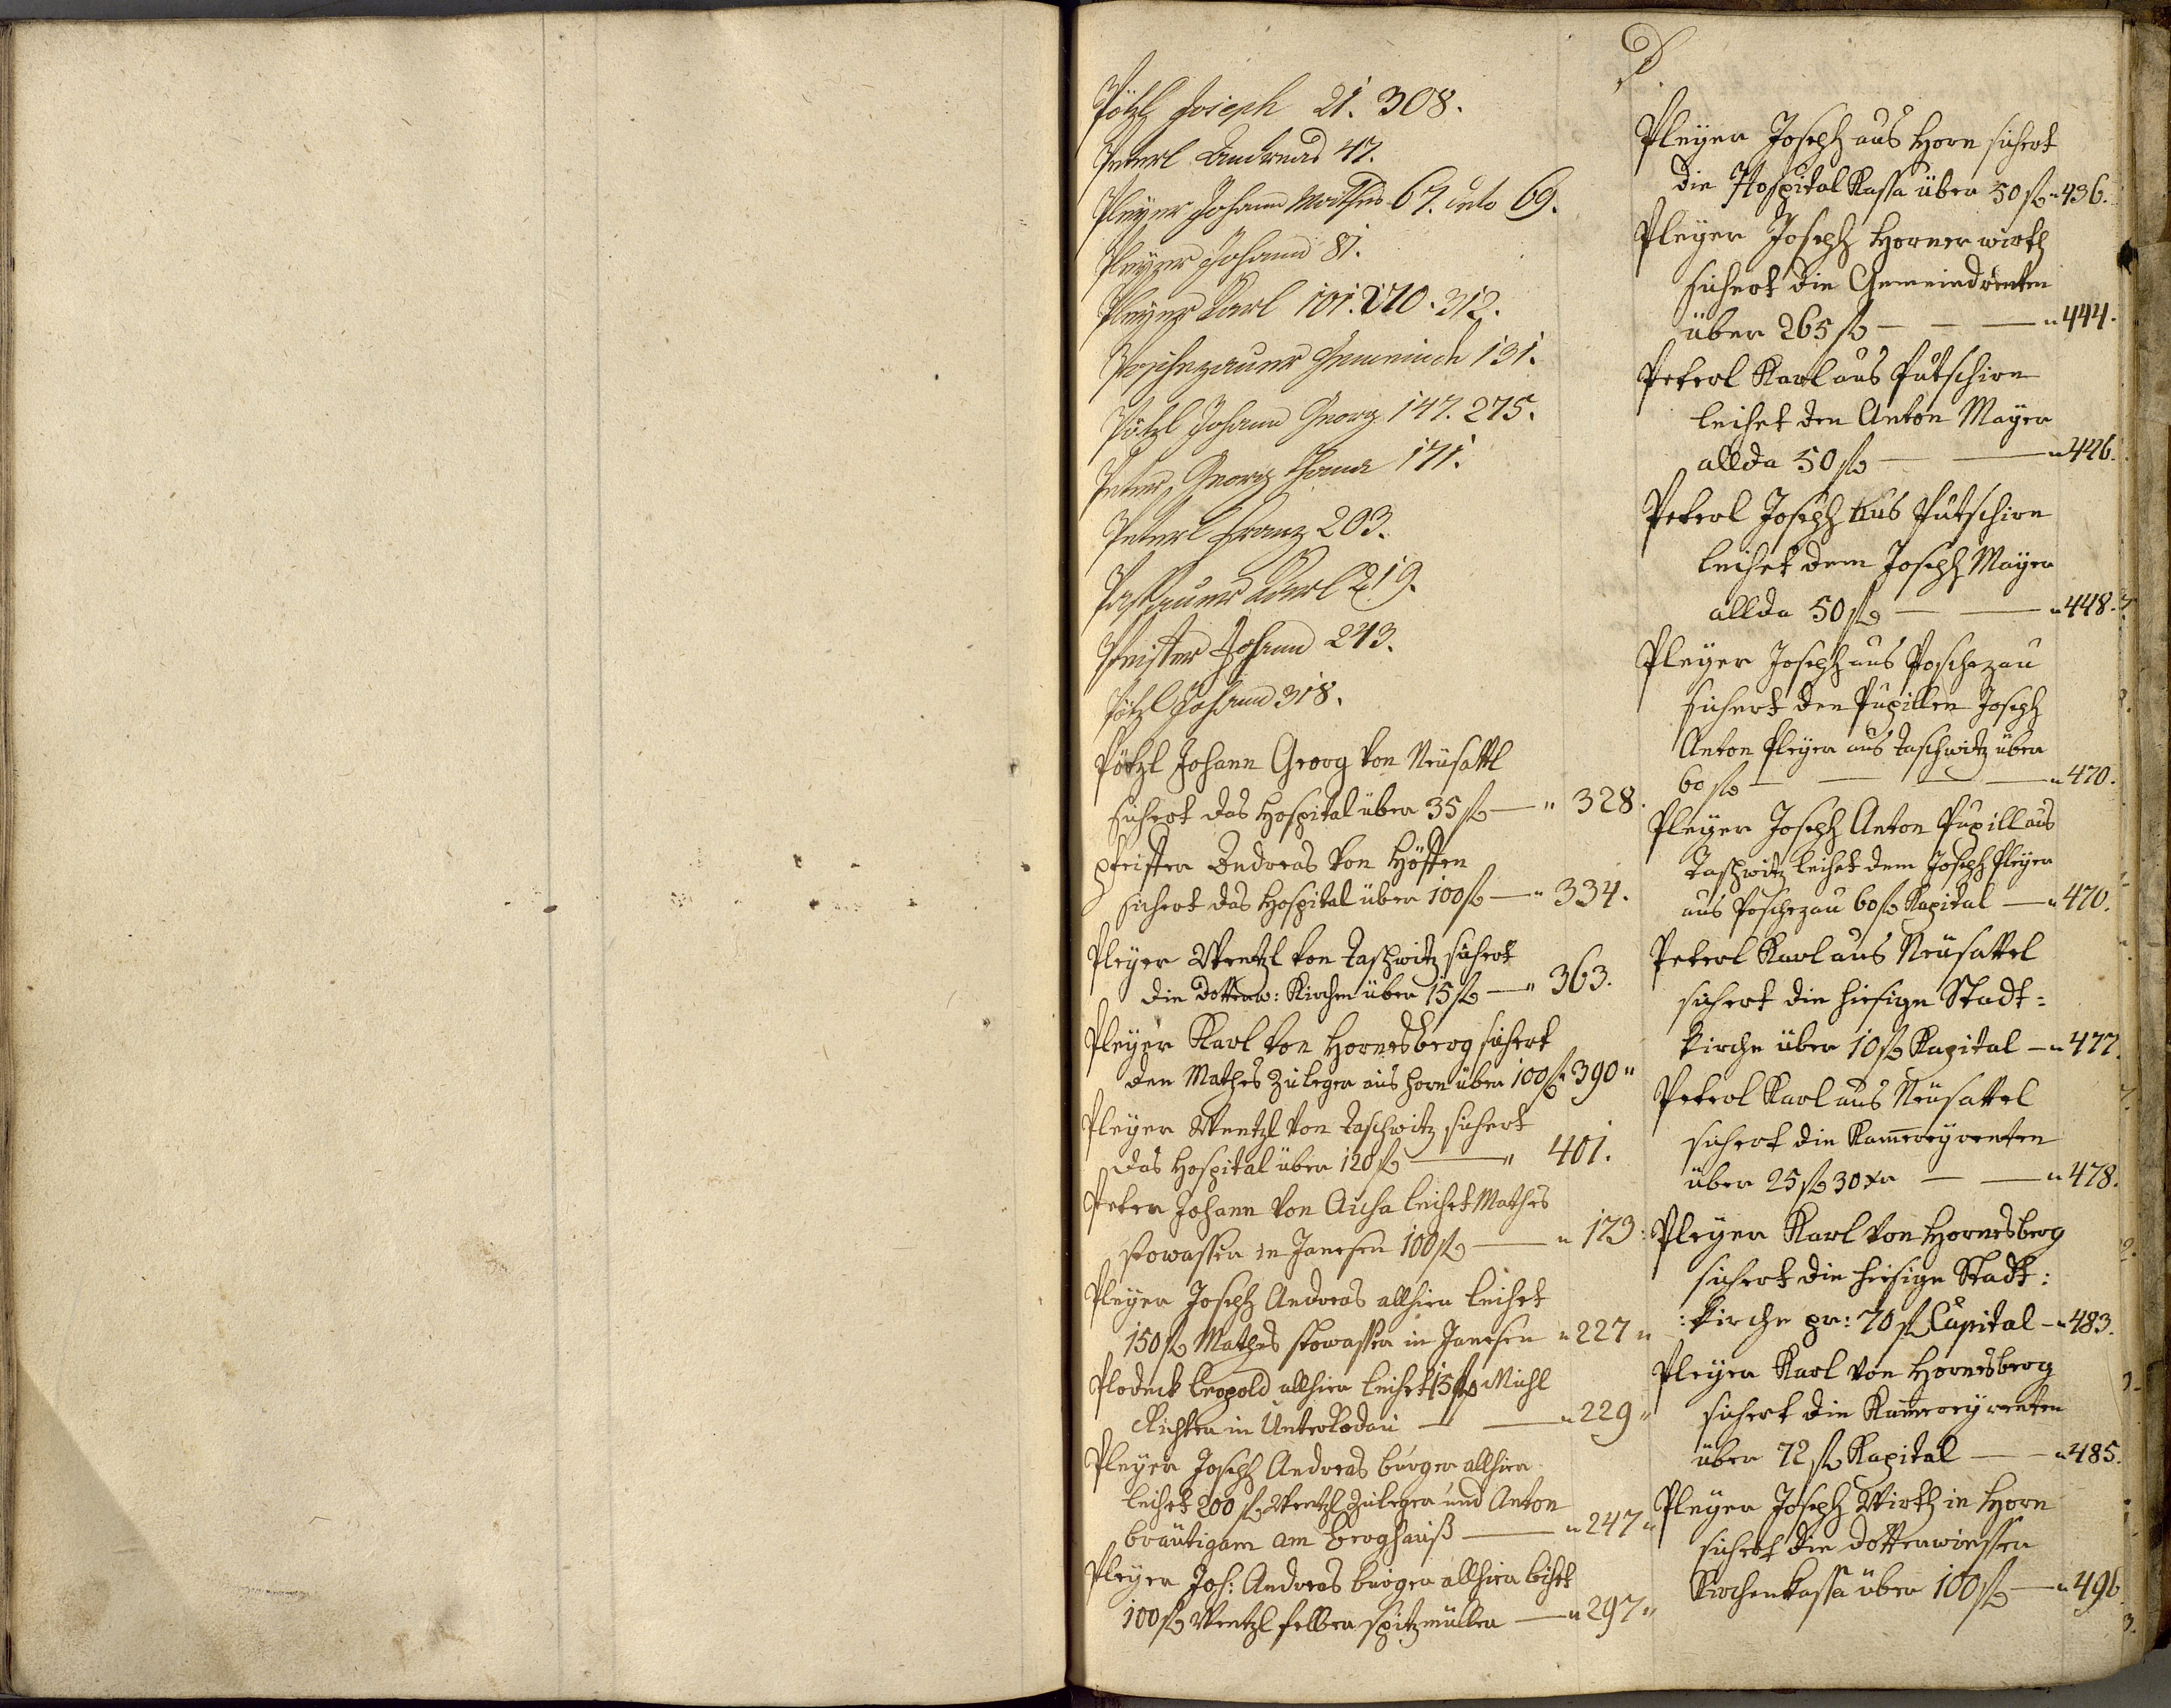 P.
Pötzl Joseph 21. 308.
Peterl Andreas 47.
Pleyer Johann Mathes 67. deto 69.
Pleyer Johann 81.
Pleyer Karl 101. 270. 312.
Poschezauer Gemeinde 131.
Pötzl Johann Georg 147. 275.
Peter, Georg 171.
Peterl Franz 203.
Passauer Karl 219.
Pfeister Johann 243.
Pötzl Johann 318.
Pötzl Johann Georg von Neusattl
sichert das Hospital über 35 fl — " 328.
Pfeister Andreas von Höffen
sichert das Hospital über 100 fl — " 334.
Pleyer Wentzl von Taschwitz sichert
die Dottenw: Kirchen über 15 fl — " 363.
Pleyer Karl von Hornesberg sichert
den Mathes Zuleger aus Horn über 100 fl " 390 "
Pleyer Wentzl von Taschwitz sichert
das Hospital über 120 fl — " 401.
Peter Johann von Aicha leihet Mathes
Stowasser in Janesen 100 fl — " 173.
Pleyer Joseph Andreas allhier leihet
150 fl Mathes Stowasser in Janesen " 227 "
Plodeck Leopold allhier leihet 15 fl Michl
Richter in Unterkodau — — " 229 "
Pleyer Joseph Andreas burger allhier
leihet 200 fl Wentzl Zuleger und Anton
bräutigam am Berghauß — " 247 "
Pleyer Jos: Andreas burger allhier leihet
100 fl Wentzl felber Spitzmüller — " 297 "
Pleyer Joseph aus Horn sichert
die Hospital Kassa über 50 fl " 436.
Pleyer Joseph Horner wirth
sichert die Gemeindrenten
über 265 fl — — — " 444.
Peterl Karl aus Putschirn
leihet den Anton Mayer
allda 50 fl — — " 446.
Peterl Joseph aus Putschirn
leihet dem Joseph Mayer
allda 50 fl — — " 448.
Pleyer Joseph aus Poschezau
sichert den Pupillen Joseph
Anton Pleyer aus Taschwitz über
60 fl — — — " 470.
Pleyer Joseph Anton Pupill aus
Taschwitz leihet dem Joseph Pleyer
aus Poschezau 60 fl Kapital — " 470.
Peterl Karl aus Neusattel
sichert die hiesige Stadt=
kirche über 10 fl Kapital — " 477.
Peterl Karl aus Neusattel
sichert die Kam̅ereyrenten
über 25 fl 30 xr — — " 478.
Pleyer Karl von Hornesberg
sichert die hiesige Stadt:
:kirche pr: 70 fl Capital — " 483.
Pleyer Karl von Hornesberg
sichert die Kam̅ereyrenten
über 72 fl Kapital — — " 485.
Pleyer Joseph Wirth in Horn
sichert die Dottenwiesser
Kirchenkassa über 100 fl — " 496